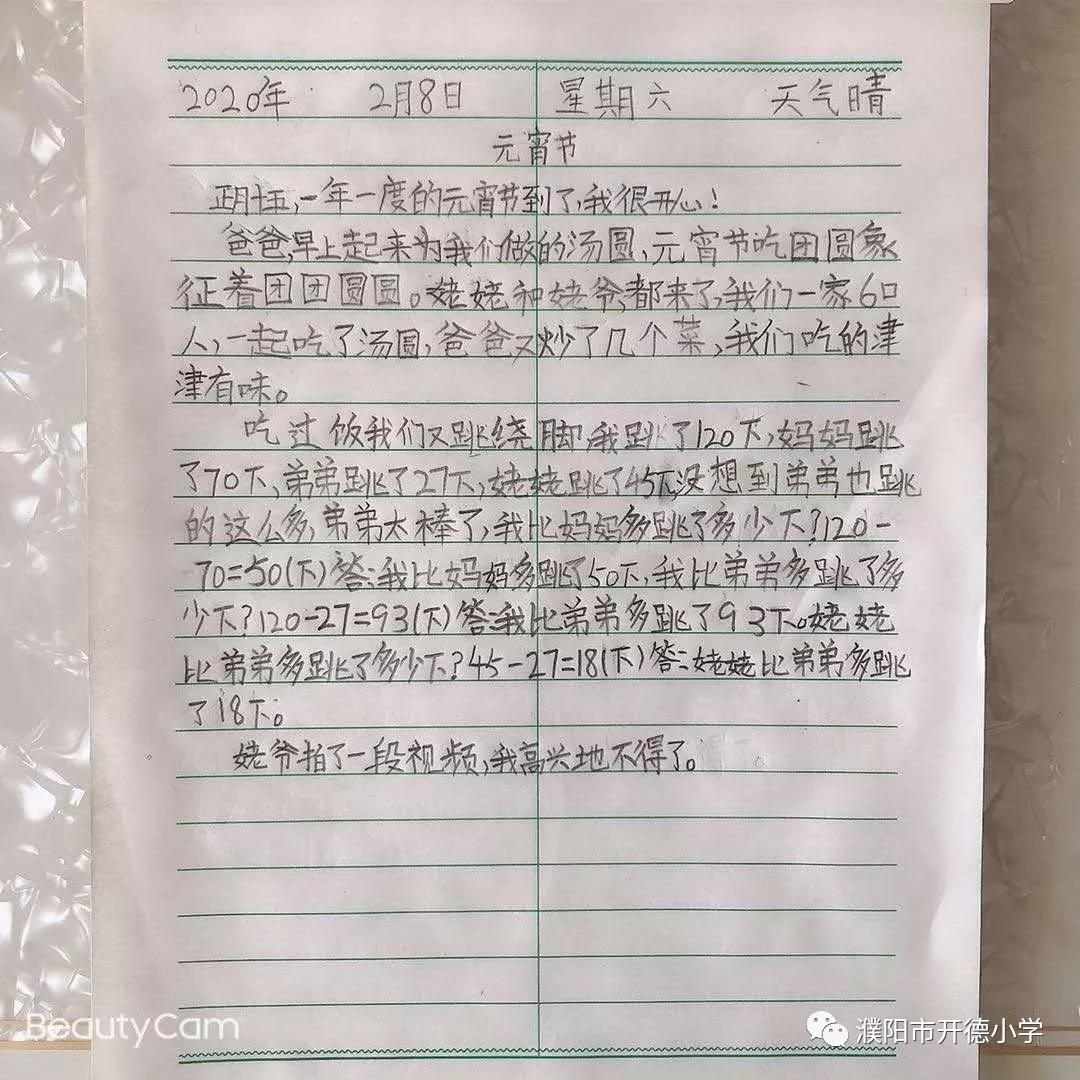 2020年 2月8日 星期六 天气晴
元宵节
正月十五,一年一度的元宵节到了,我很开心!
爸爸,早上起来为我们做的汤圆,元宵节吃团圆象
征着团团圆圆。姥姥和姥爷,都来了,我们一家6口
人,一起吃了汤圆,爸爸又炒了几个菜,我们吃的津
津有味。
吃过饭我们又跳绕脚,我跳了120下,妈妈跳
了70下,弟弟跳了27下,姥姥跳了45下,没想到弟弟也跳
的这么多,弟弟太棒了,我比妈妈多跳了多少下?120-
70=50(下)答:我比妈妈多跳了50下,我比弟弟多跳了多
少下?120-27=93(下)答:我比弟弟多跳了93下。姥姥
比弟弟多跳了多少下?45-27=18(下)答:姥姥比弟弟多跳
了18下。
姥爷拍了一段视频,我高兴地不得了。
BeautyCam
濮阳市开德小学